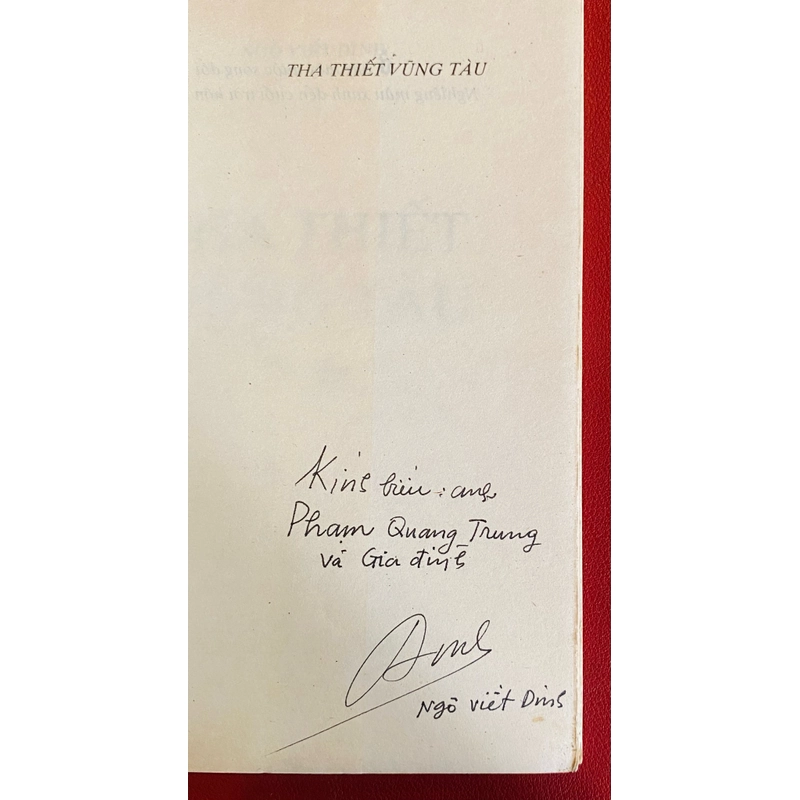 THA THIẾT VŨNG TÀU
Kính biếu : anh
Phạm Quang Trung
và Gia đình
Ngô Viết Dinh